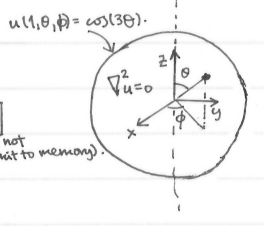 u(1,θ,ϕ) = cos(3θ).
∇²u=0
z
θ
y
x
ϕ
not
to memory).